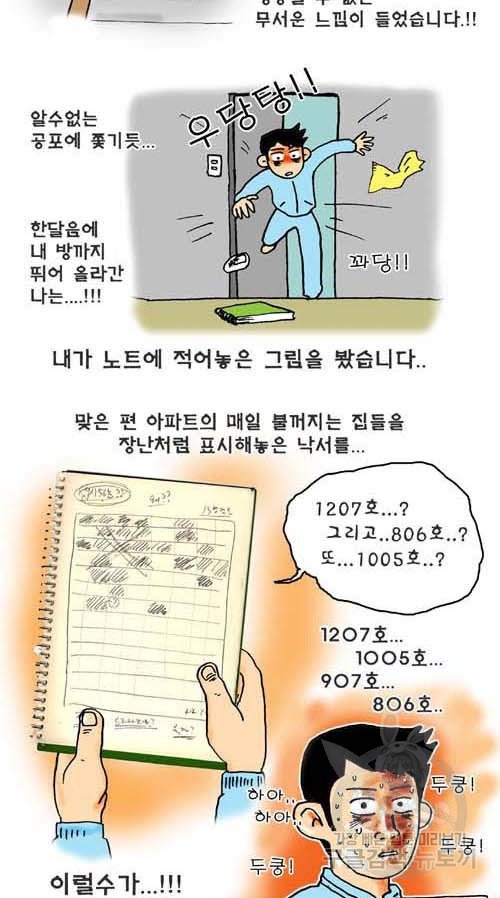 무서운 느낌이 들었습니다.!!
우당탕!!
알수없는
공포에 쫓기듯...
한달음에
내 방까지
뛰어 올라간
나는....!!!
꽈당!!
내가 노트에 적어놓은 그림을 봤습니다..
맞은 편 아파트의 매일 불꺼지는 집들을
장난처럼 표시해놓은 낙서를...
1207호...?
그리고..806호..?
또...1005호..?
1207호...
1005호...
907호...
806호..
두쿵!
하아,,
하아,,
두쿵!
두쿵!
이럴수가...!!!